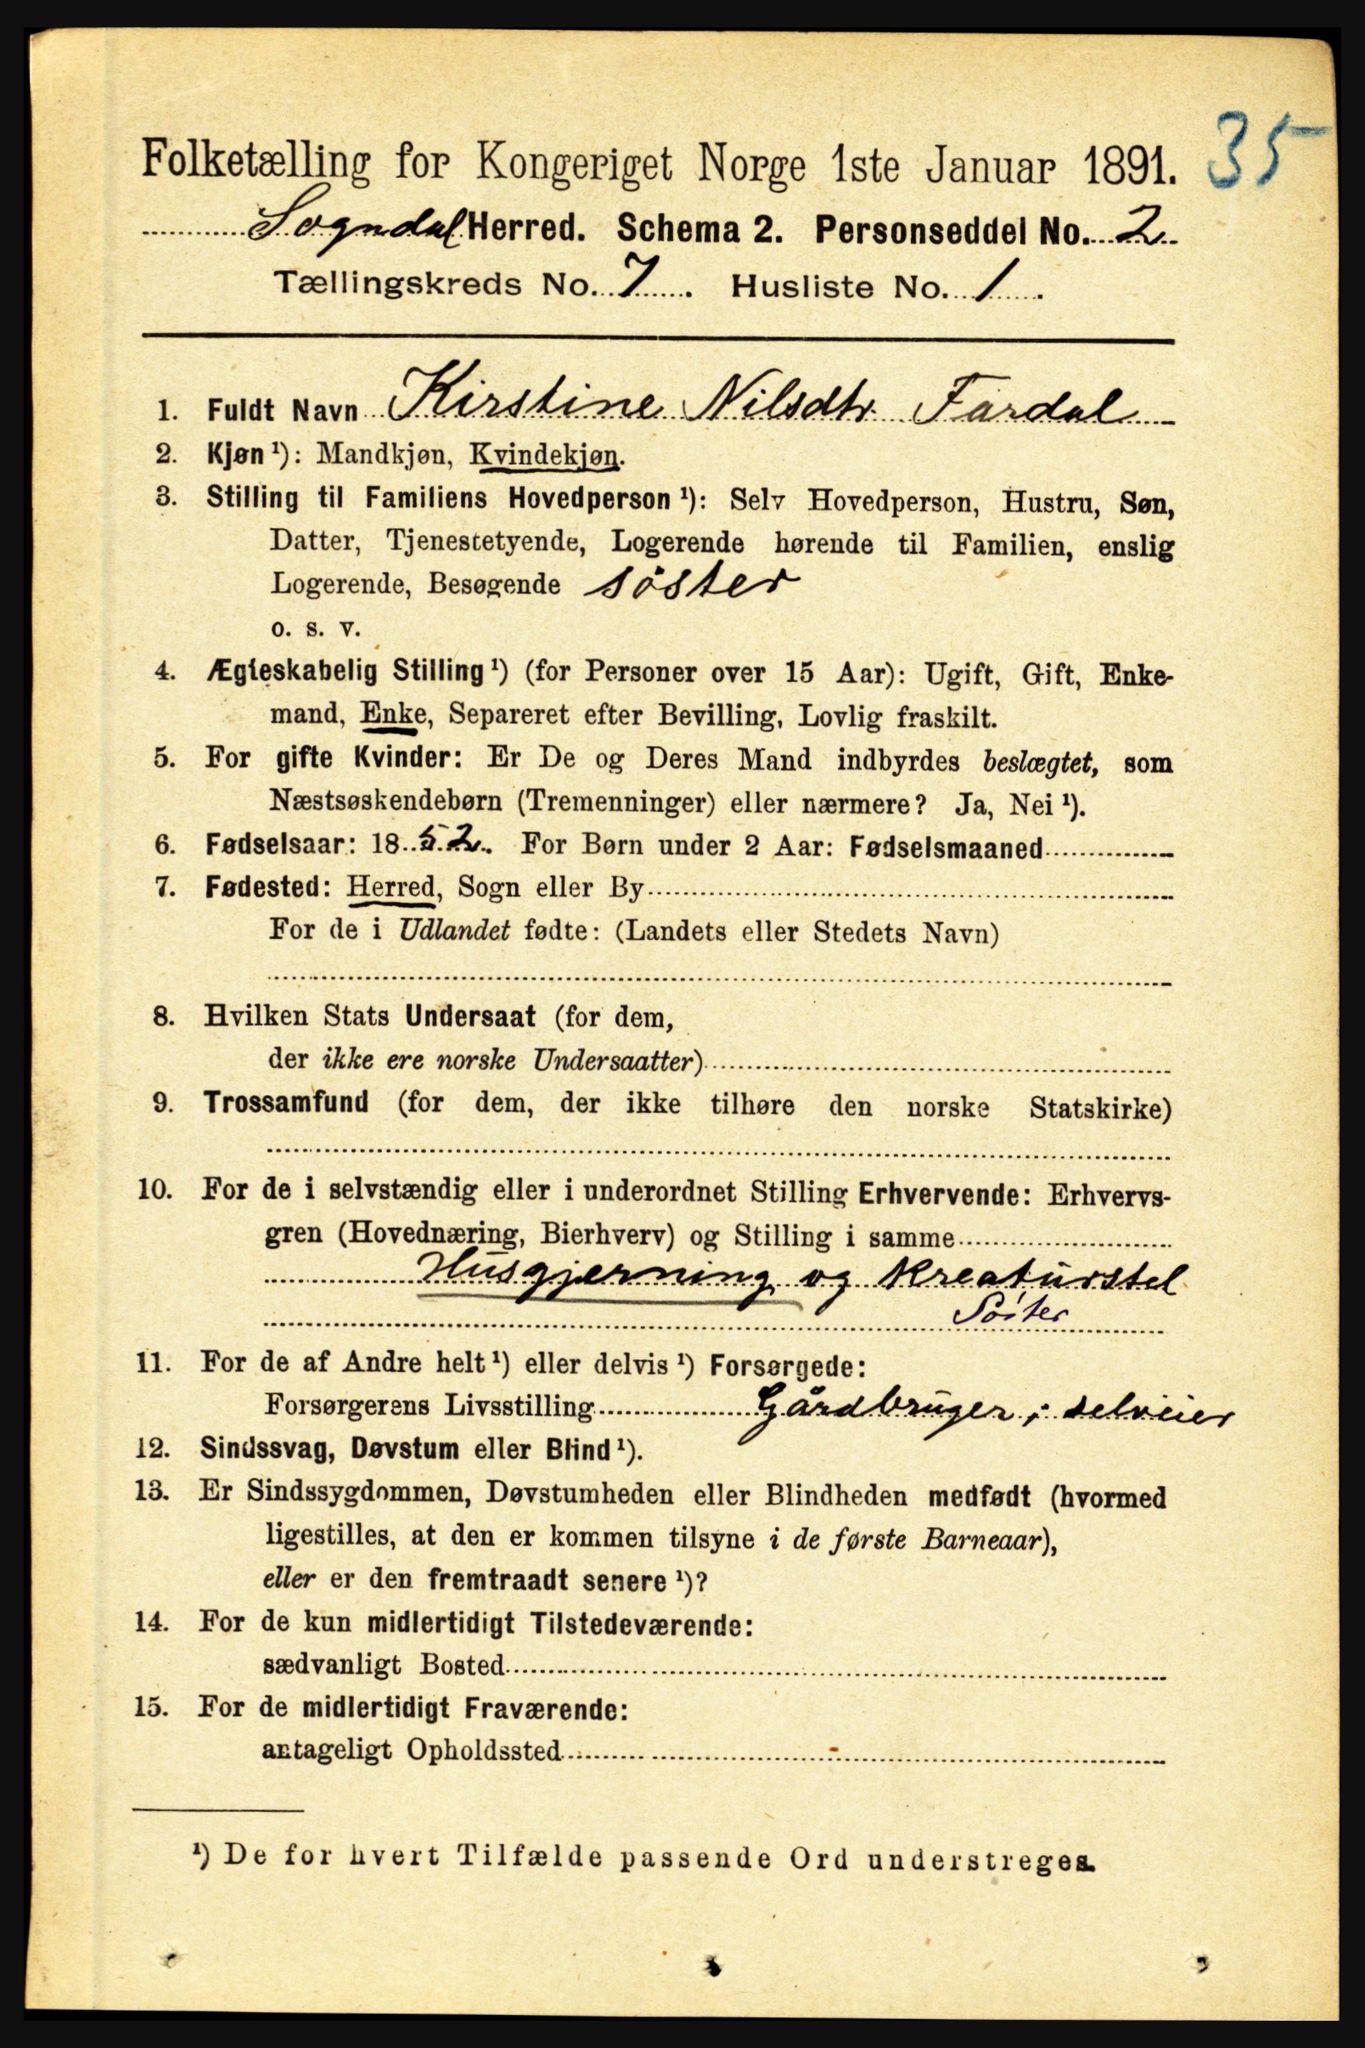 35
Folketælling for Kongeriget Norge 1ste Januar 1891.
Sogndal Herred. Schema 2. Personseddel No. 2
Tællingskreds No. 7. Husliste No. 1.
1. Fuldt Navn Kirstine Nilsdtr. Fardal
2. Kjøn ¹): Mandkjøn, Kvindekjøn.
3. Stilling til Familiens Hovedperson ¹): Selv Hovedperson, Hustru, Søn,
Datter, Tjenestetyende, Logerende hørende til Familien, enslig
Logerende, Besøgende söster
o. s. v.
4. Ægteskabelig Stilling ¹) (for Personer over 15 Aar): Ugift, Gift, Enke-
mand, Enke, Separeret efter Bevilling, Lovlig fraskilt.
5. For gifte Kvinder: Er De og Deres Mand indbyrdes beslægtet, som
Næstsøskendebørn (Tremenninger) eller nærmere? Ja, Nei ¹).
6. Fødselsaar: 1852. For Børn under 2 Aar: Fødselsmaaned
7. Fødested: Herred, Sogn eller By
For de i Udlandet fødte: (Landets eller Stedets Navn)
8. Hvilken Stats Undersaat (for dem,
der ikke ere norske Undersaatter)
9. Trossamfund (for dem, der ikke tilhøre den norske Statskirke)
10. For de i selvstændig eller i underordnet Stilling Erhvervende: Erhvervs-
gren (Hovednæring, Bierhverv) og Stilling i samme
Husgjerning og Kreaturstel
Söster
11. For de af Andre helt ¹) eller delvis ¹) Forsørgede:
Forsørgerens Livsstilling Gårdbruger, selveier
12. Sindssvag, Døvstum eller Blind ¹).
13. Er Sindssygdommen, Døvstumheden eller Blindheden medfødt (hvormed
ligestilles, at den er kommen tilsyne i de første Barneaar),
eller er den fremtraadt senere ¹)?
14. For de kun midlertidigt Tilstedeværende:
sædvanligt Bosted
15. For de midlertidigt Fraværende:
antageligt Opholdssted
¹) De for hvert Tilfælde passende Ord understreges.